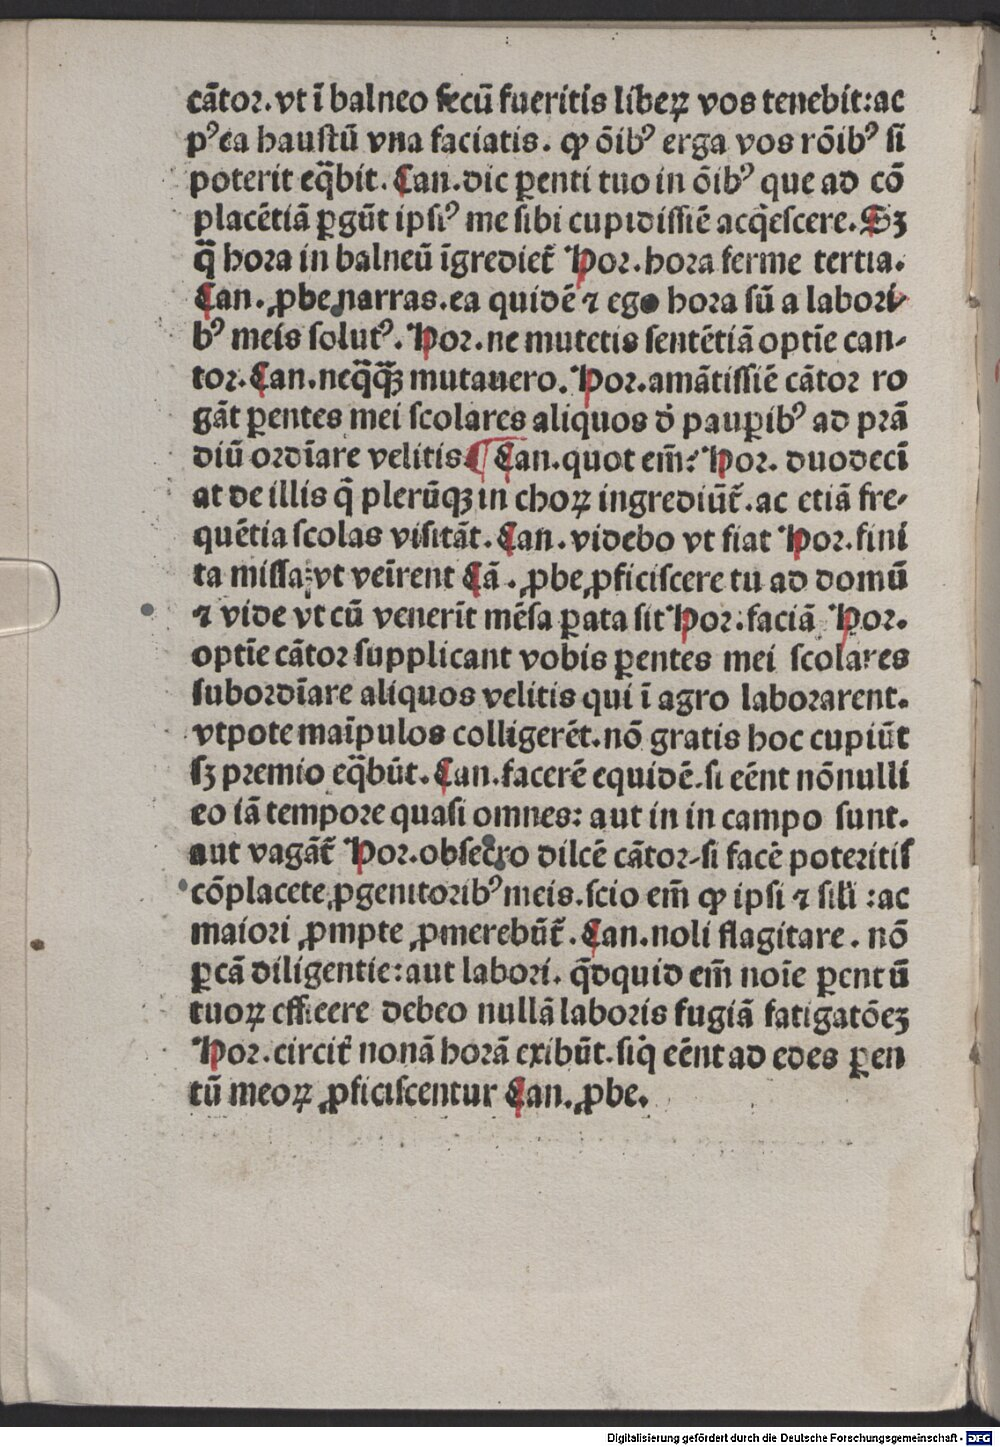 cātor. vt ī balneo secū fueritis libeꝝ vos tenebit: ac
pꝰea haustū vna faciatis. ꝙ ōibꝰ erga vos rōibꝰ si
poterit eq̄bit. Can. dic ꝑenti tuo in ōibꝰ que ad cō
placētiā ꝑgūt ipsiꝰ me sibi cupidissiē acq̇escere. Sꝫ
q̄ hora in balneū īgrediet̄ Por. hora ferme tertia.
Can. ꝓbe narras. ea quidē ⁊ ego hora sū a labori⸗
bꝰ meis solutꝰ. Por. ne mutetis sentētiā optīe can⸗
tor. Can. neq̄q̄ꝫ mutauero. Por. amātissiē cātor ro
gāt ꝑentes mei scolares aliquos ḋ pauꝑibꝰ ad prā
diū ordīare velitis. ¶ Can. quot em̄? Por. duodecī
at de illis q̄ plerūqꝫ in choꝝ ingrediūt̄. ac etiā fre⸗
quētia scolas visitāt. Can. videbo vt fiat Por. fini
ta missa: vt veīrent Cā. ꝓbe ꝓficiscere tu ad domū
⁊ vide vt cū venerīt mēsa ꝑata sit Por. faciā Por.
optīe cātor supplicant vobis ꝑentes mei scolares
subordīare aliquos velitis qui ī agro laborarent.
vtpote maīpulos colligerēt. nō gratis hoc cupiūt
sꝫ premio eq̄būt. Can. facerē equidē. si eēnt nōnulli
eo iā tempore quasi omnes: aut in in campo sunt.
aut vagāt̄ Por. obsecro dilcē cātor⸗si facē poteritis
cōplacete ꝓgenitoribꝰ meis. scio em̄ ꝙ ipsi ⁊ sili : ac
maiori ꝓmpte ꝓmerebūt̄. Can. noli flagitare. nō
ꝑcā diligentie: aut labori. q̄dquid em̄ noīe ꝑentū
tuoꝝ efficere debeo nullā laboris fugiā fatigatōeꝫ
Por. circit̄ nonā horā exibūt. siq̇ eēnt ad edes ꝑen
tū meoꝝ ꝓficiscentur Can. ꝓbe.
Digitalisierung gefördert durch die Deutsche Forschungsgemeinschaft - DFG